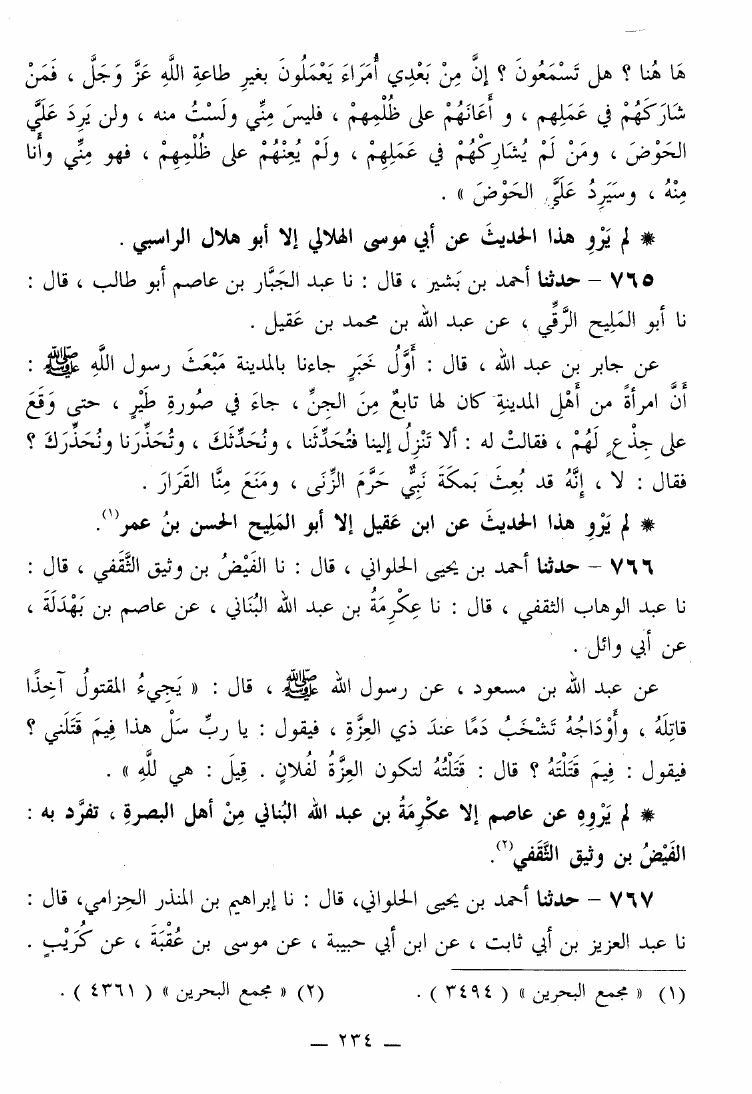 هَا هُنا ؟ هل تَسْمَعُونَ ؟ إنَّ مِنْ بَعْدِي أُمَرَاءَ يَعْمَلُونَ بغيرِ طاعةِ اللَّهِ عَزَّ وَجَلَّ ، فَمَنْ
شارَكَهُمْ في عَمَلِهم ، و أَعَانَهُمْ على ظُلْمِهِمْ ، فليسَ مِنِّي ولَسْتُ منه ، ولن يَرِدَ عَلَيَّ
الحَوْضَ ، ومَنْ لَمْ يُشارِكْهُمْ في عَمَلِهِمْ ، ولَمْ يُعِنْهُمْ على ظُلْمِهِمْ ، فهو مِنِّي وأنا
مِنْهُ ، وسَيَرِدُ عَلَيَّ الحَوْضَ » .
* لم يَرْوِ هذا الحديثَ عن أبي موسى الهلالي إلا أبو هلال الراسبي .
٧٦٥ – حدثنا أحمد بن بَشير ، قال : نا عبد الجَبَّار بن عاصم أبو طالب ، قال :
نا أبو المَلِيح الرَّقِّي ، عن عبد الله بن محمد بن عَقيل .
عن جابر بن عبد الله ، قال : أَوَّلُ خَبَرٍ جاءنا بالمدينة مَبْعَثَ رسول اللَّهِ ﷺ :
أَنَّ امرأةً من أَهْلِ المدينةِ كان لها تابعٌ مِنَ الجنِّ ، جاءَ في صُورةِ طَيْرٍ ، حتى وَقَعَ
على جِذْعٍ لَهُمْ ، فقالتْ له : ألا تَنْزِلُ إلينا فتُحَدِّثَنا ، ونُحَدِّثَكَ ، وتُحَذِّرَنا ونُحَذِّرَكَ ؟
فقال : لا ، إِنَّهُ قد بُعِثَ بَمكَةَ نَبِيٌّ حَرَّمَ الزِّنَى ، ومَنَعَ مِنَّا القَرَارَ .
* لم يَرْوِ هذا الحديثَ عن ابن عَقيل إلا أبو المَلِيح الحسن بنُ عمر(١).
٧٦٦ – حدثنا أحمد بن يحيى الحلواني ، قال : نا الفَيْضُ بن وثيق الثَّقَفي ، قال :
نا عبد الوهاب الثقفي ، قال : نا عِكْرِمَةُ بن عبد الله البُنَاني ، عن عاصم بن بَهْدَلَةَ ،
عن أبي وائل .
عن عبد الله بن مسعود ، عن رسول الله ﷺ ، قال : « يَجِيءُ المقتولُ آخِذًا
قاتِلَهُ ، وأَوْدَاجُهُ تَشْخَبُ دَمًا عندَ ذي العِزَّةِ ، فيقول : يا ربِّ سَلْ هذا فِيمَ قَتَلَني ؟
فيقول : فِيمَ قَتَلْتَهُ ؟ قال : قَتَلْتُهُ لتكون العِزَّةُ لفُلانٍ . قِيلَ : هي للَّهِ » .
* لم يَرْوِهِ عن عاصم إلا عكْرِمَةُ بن عبد الله البُناني مِنْ أهل البصرةِ ، تفرَّد به :
الفَيْضُ بن وثيق الثَّقَفي(٢).
٧٦٧ – حدثنا أحمد بن يحيى الحلواني، قال : نا إبراهيم بن المنذر الحِزامي، قال :
نا عبد العزيز بن أبي ثابت ، عن ابن أبي حبيبة ، عن موسى بن عُقْبَةَ ، عن كُرَيْبٍ .
(١) « مجمع البحرين » ( ٣٤٩٤ ) . (٢) « مجمع البحرين » ( ٤٣٦١ ) .
— ٢٣٤ —